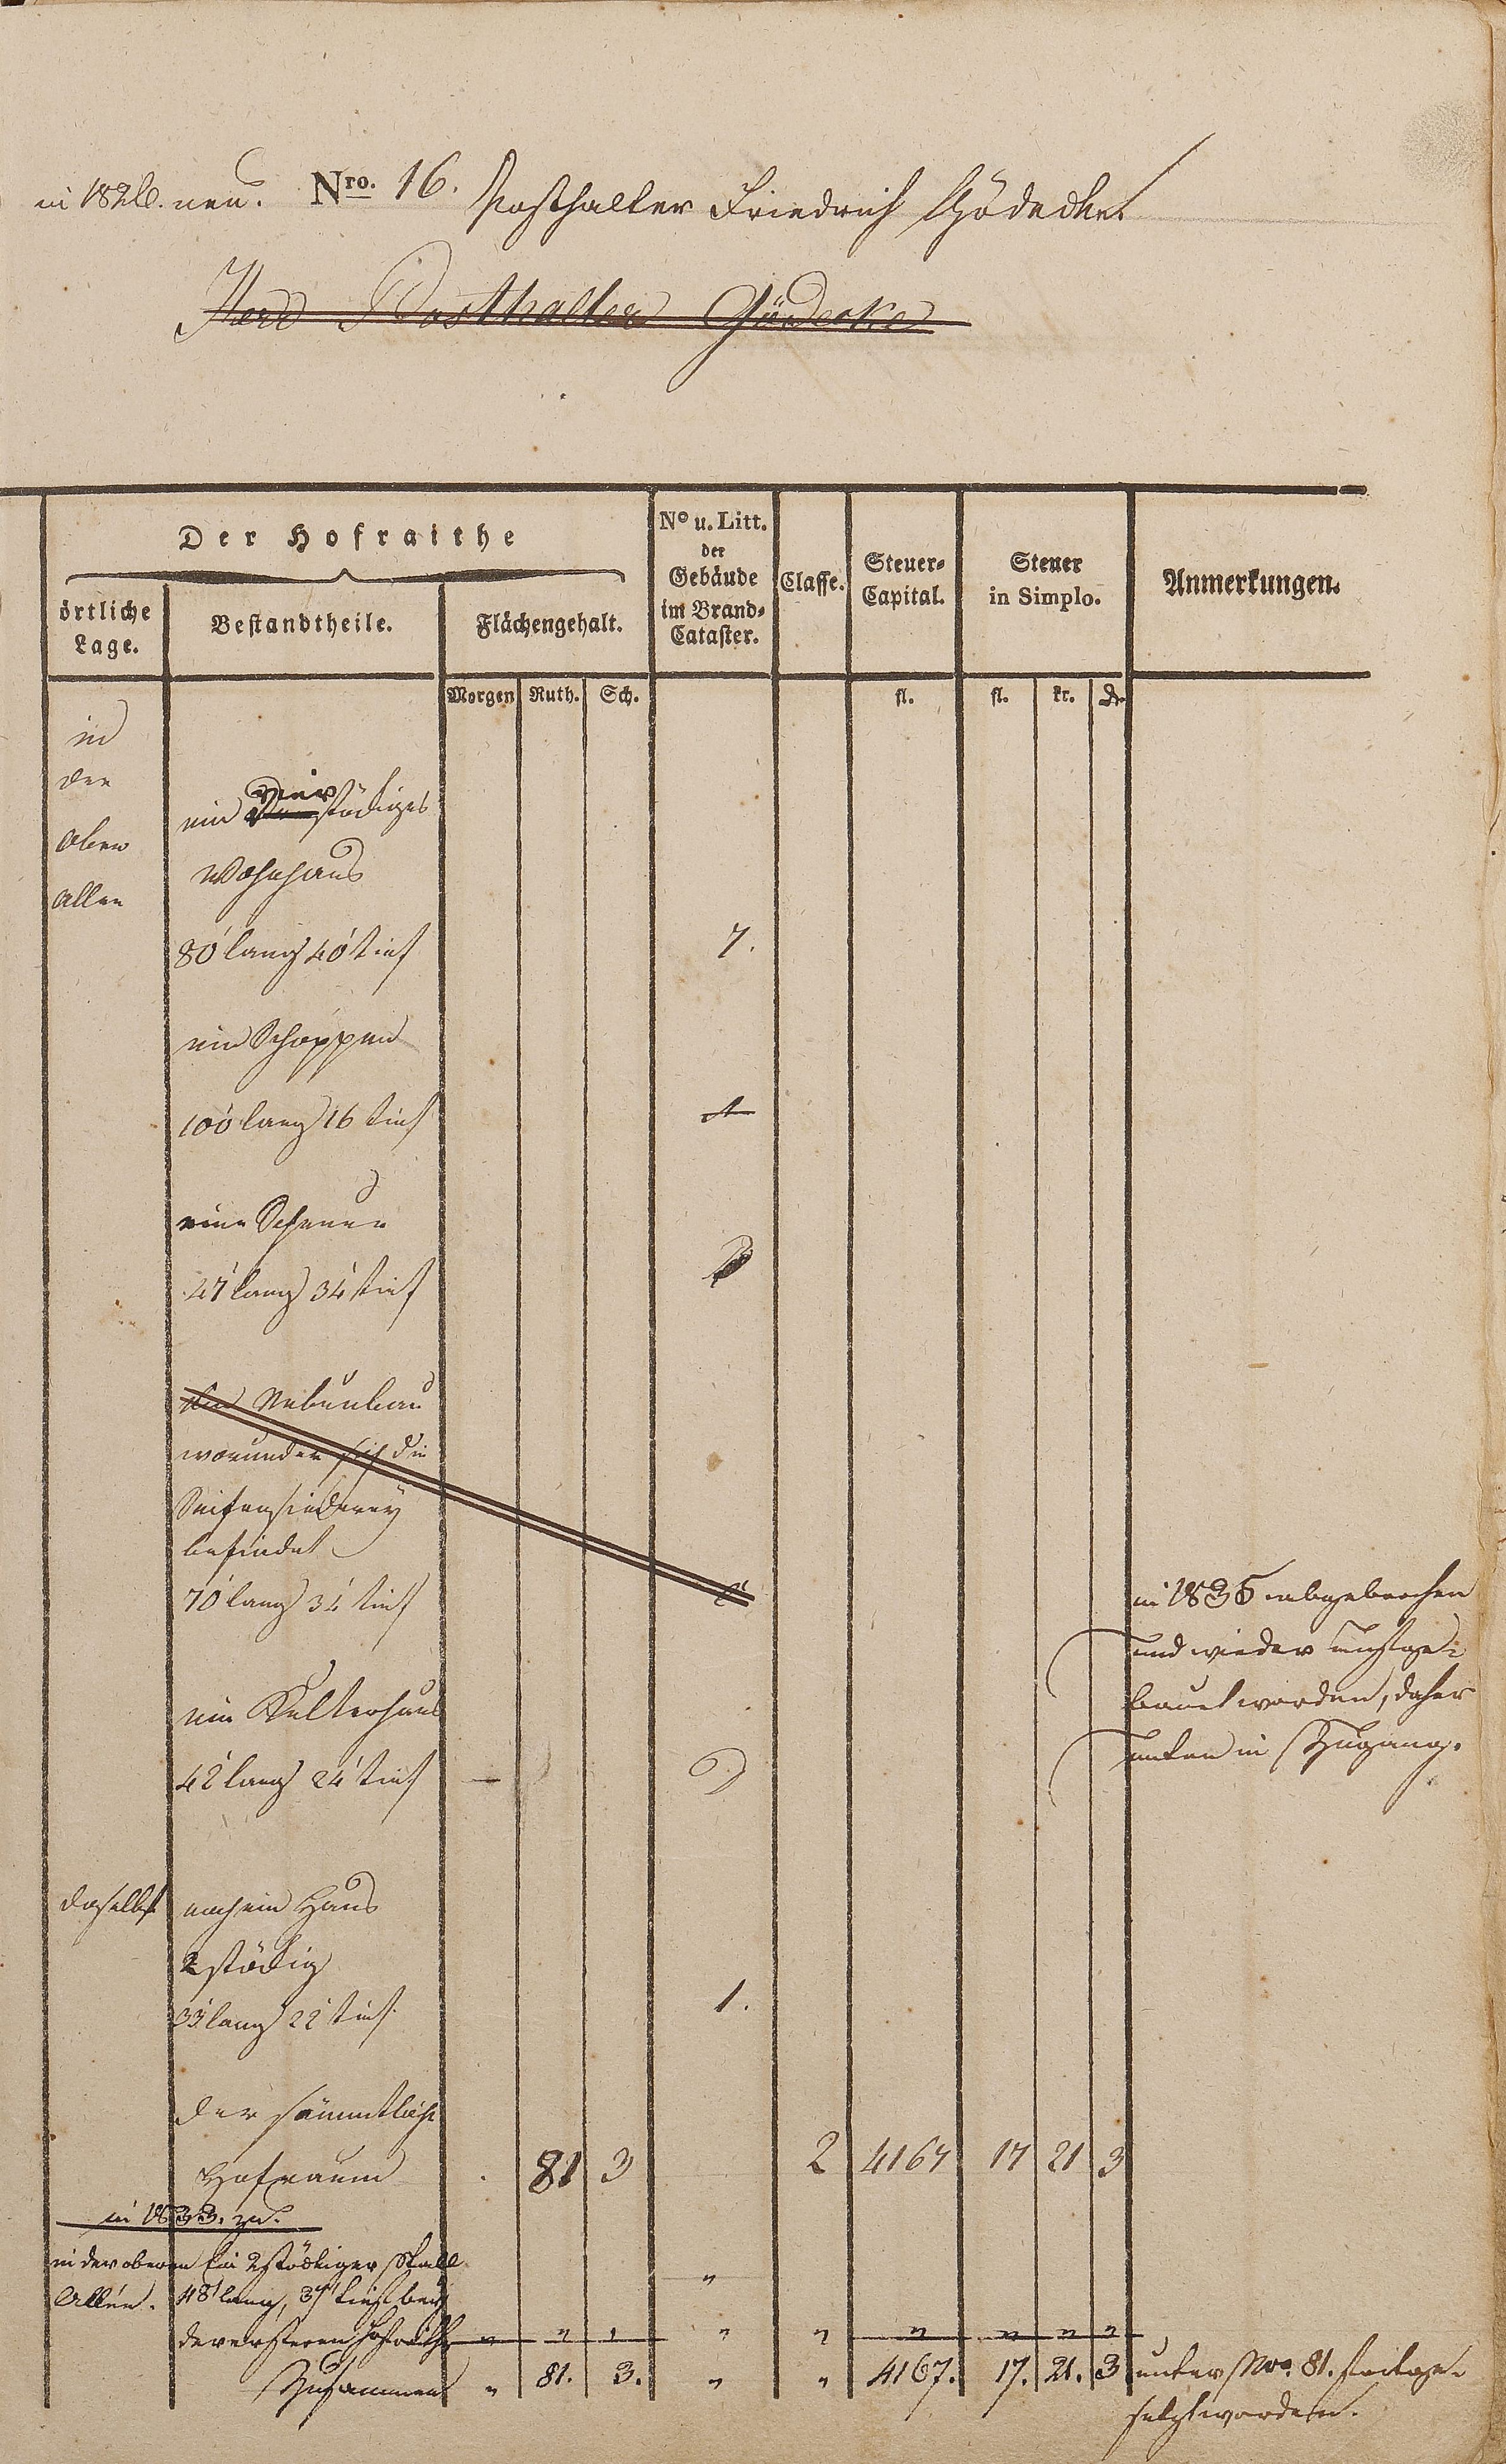 in 1826. neu. Nro. 16. Posthalter Friedrich Gödecke
Herr Posthalter Gödecke
Der Hofraithe
örtliche Lage.
Bestandtheile.
Flächengehalt.
No u. Litt. der Gebäude im Brand-Cataster.
Classe.
Steuer-Capital.
Steuer in Simplo.
Anmerkungen.
Morgen Ruth. Sch. fl. fl. kr. dr.
in
der
obern
Allee
vier
ein stöckiges
Wohnhaus
80' lang 40' tief 7.
ein Schoppen
100' lang 16 tief A
eine Scheuer
47' lang 34' tief B
ein Nebenbau
worunder sich die
Seifensiederey
befindet
70' lang 34' tief C
in 1835 abgebrochen
und wieder aufge-
bauet worden, daher
unten in Zugang.
ein Kelterhaus
42' lang 24' tief — D
daselbst noch ein Haus
2 stöckig
33' lang 22' tief 1.
der sämmtliche
Hofraum . 81 3 2 4167 17 21 3
in 1833. zu.
in der oberen Ein 2stöckiger Stall
Allée. 48' lang, 37' tief bey "
der ersteren Hofraithe " " " " " " " " "
Zusammen " 81. 3. " " 4167. 17. 21. 3
unter Nro. 81. fortge-
setzt worden.